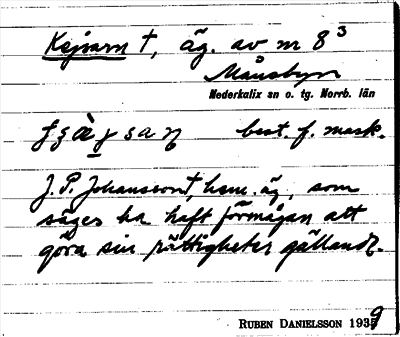 Kejsarn †, äg. av nr 8³
Månsbyn
Nederkalix sn o. tg. Norrb. län
best. f. mask.
J. P. Johansson †, hem. äg., som
säges ha haft förmågan att
göra sin rättigheter gällande.
RUBEN DANIELSSON 1939